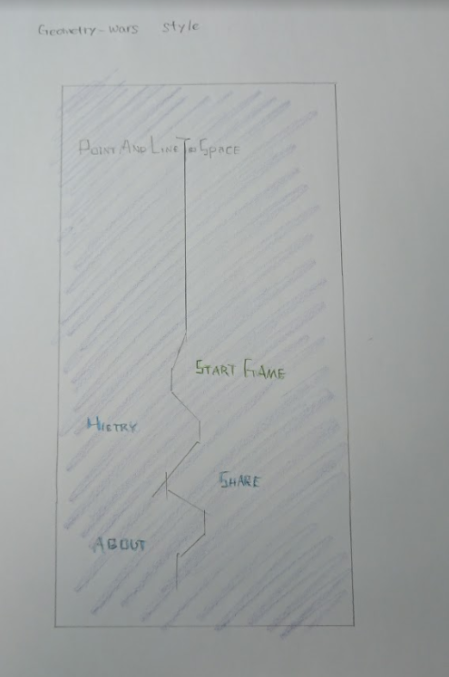 Geometry-wars style
POINT AND LINE TO SPACE
START GAME
HISTRY
SHARE
ABOUT